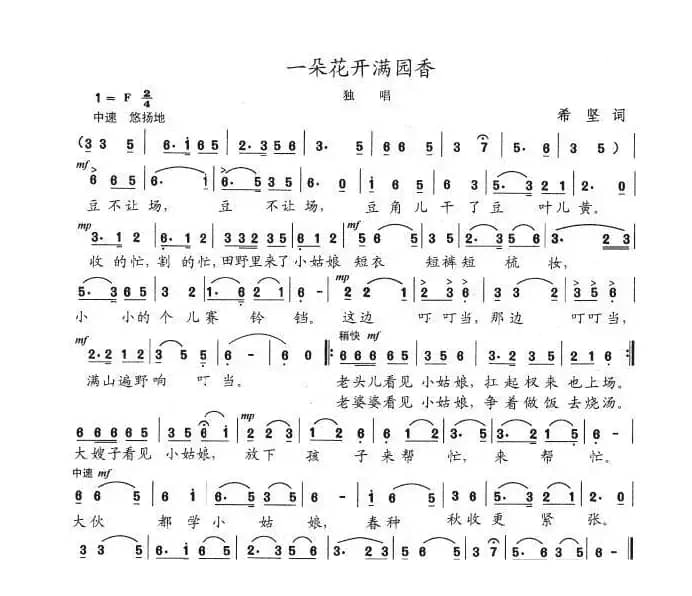 一朵花开满园香
独 唱
1 = F 2/4
中速 悠扬地
希 坚 词
(3 3 5 | 6· i 6 5 | 2· 3 5 6 | 3· 5 | 6 6 5 | 3 7 | 5· 6 | 3 5 ) |
mf
6 6 5 | 6· i | 6· 5 3 5 | 6· 0 | i 6 5 | 5· 3 2 1 | 2· 0 |
豆 不 让 场, 豆 不 让 场, 豆 角 儿 干 了 豆 叶 儿 黄。
mp mf
3· 1 2 | 6· 1 2 | 3 3 2 2 3 5 | 6 1 2 | 3· 5 | 2· 3 5 6 | 3· 2 3 |
收 的 忙, 割 的 忙, 田 野 里 来 了 小 姑 娘 短 衣 短 裤 短 梳 妆,
mp
5· 3 | 5· 6 5 3 | 1· 6 2 1 | 6 - | 2 2 | 2 3 6 | 3 2 | 3 5 6 |
小 小 的 个 儿 赛 铃 铛。 这 边 叮 叮 当, 那 边 叮 叮 当,
mf 稍快 mf
2· 2 1 2 | 3 5 5 | 6 - | 6 0 |: 6 6 6 6 5 | 3 5 6 | 5 5 3 2 | 1 2 3 |
满 山 遍 野 响 叮 当。 老 头 儿 看 见 小 姑 娘, 扛 起 杈 来 也 上 场。
老 婆 婆 看 见 小 姑 娘, 争 着 做 饭 去 烧 汤。
mp
6 6 6 6 5 | 3 5 6 i | 2 2 3 | 1 6 | 6 1 2 | 3· 5 | 2 3 2 1 5 | 6 - :|
大 嫂 子 看 见 小 姑 娘, 放 下 孩 子 来 帮 忙, 来 帮 忙。
中速 mf
6 6 | 5 5 | 6· 3 | 5 - | i 6 5 | 3 5 6 | 5· 3 2 1 | 2 - |
大 伙 都 学 小 姑 娘, 春 种 秋 收 更 紧 张。